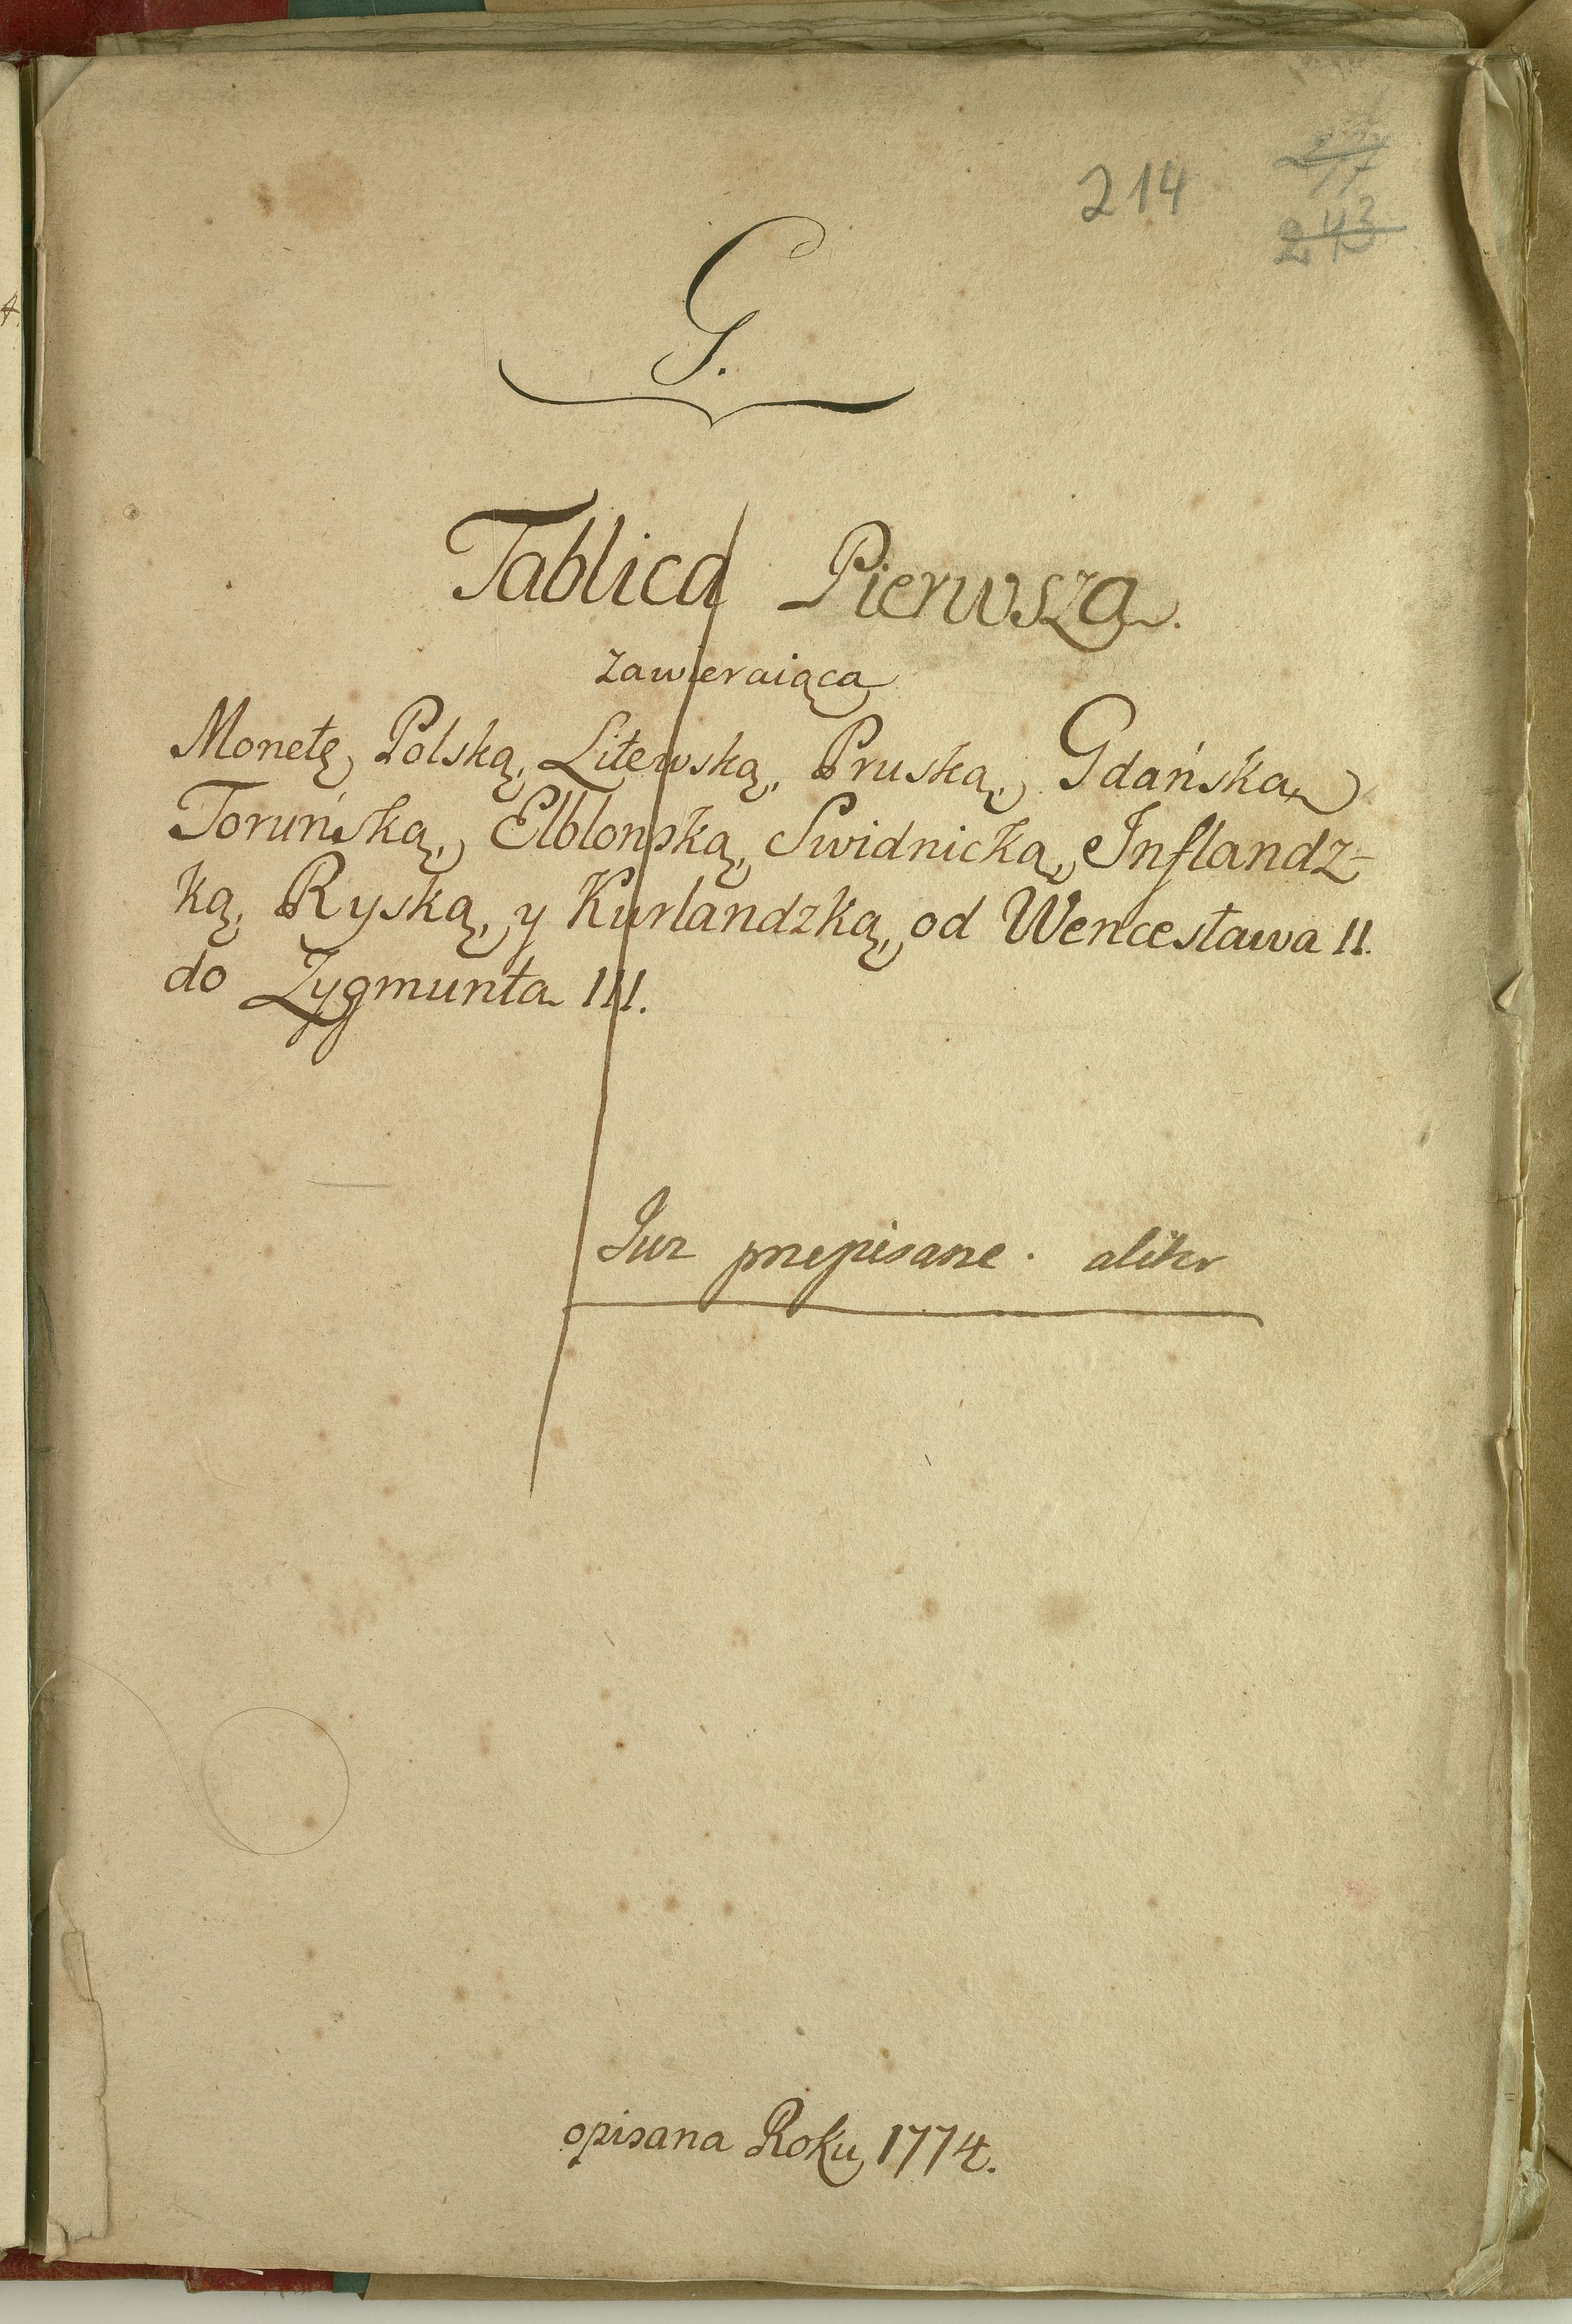 214
243
G.
Tablica Pierwsza.
zawieraiąca
Monetę Polską, Litewską, Pruską, Gdańską
Toruńską, Elblonską, Swidnicką, Inflandz-
ką, Ryską, y Kurlandzką, od Wencesława II.
do Zygmunta III.
Juz przepisane.
opisana Roku 1774.